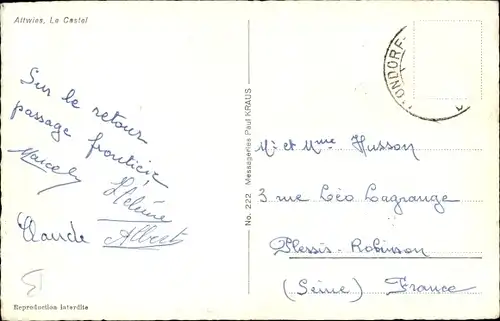 Altwies, Le Castel
Sur le retour
passage frontière
Marcel
Hélène
Claude Albert
Reproduction interdite
No. 222 Messageries Paul KRAUS
MONDORF-
Mr et Mme Husson
3 rue Léo Lagrange
Plessis-Robinson
(Seine) France